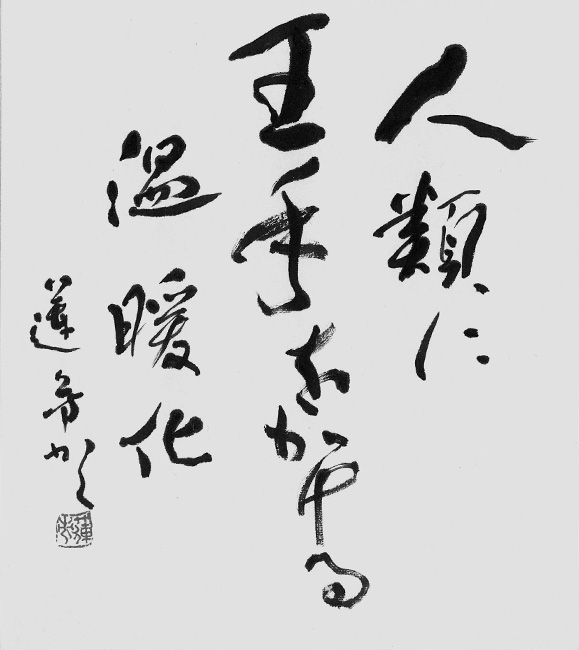 人類に
王手をかける
温暖化
蓮